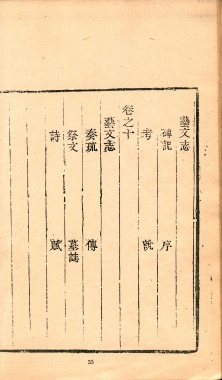 藝文志
碑記 序
考 說
卷之十
藝文志
奏疏 傳
祭文 墓誌
詩 賦
33